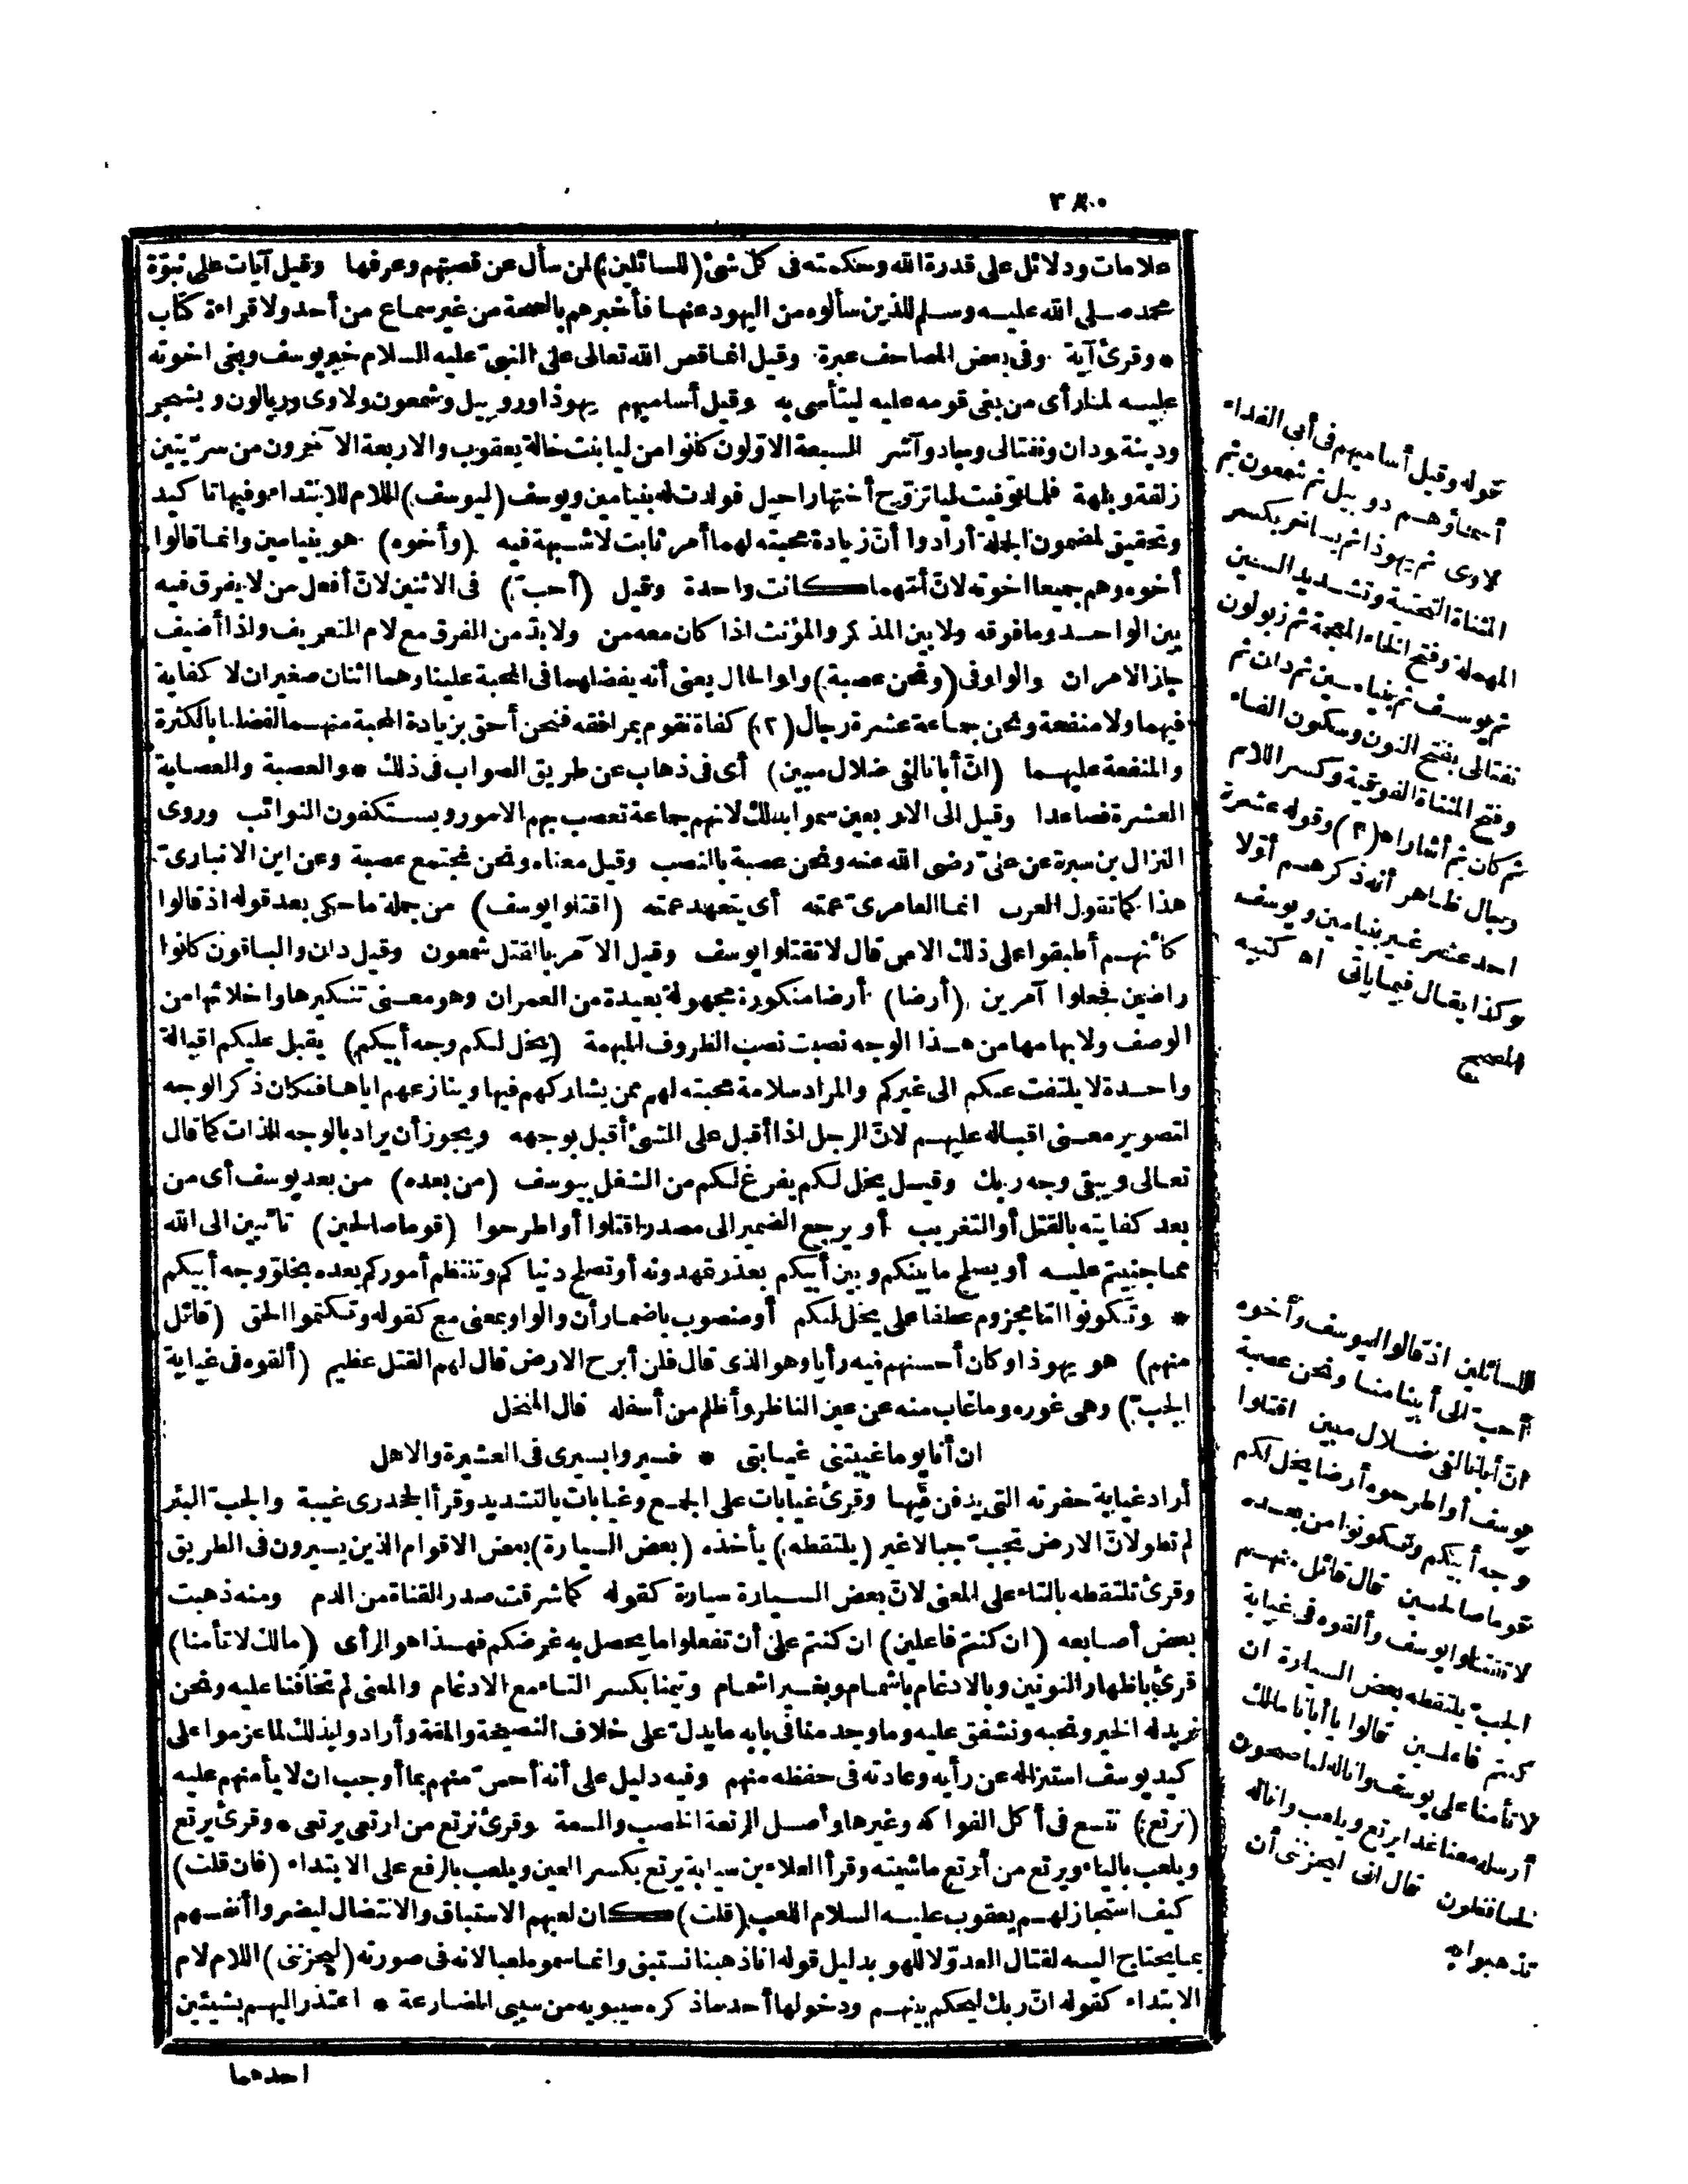 علامات ودلائل على قدرة الله وحكمته فى كل شئ (للسائلين) لمن سأل عن قصتهم وعرفها وقيل آيات على نبوّة
محمد صلى الله عليه وسلم للذين سألوه من اليهود عنها فأخبرهم بالصحة من غير سماع من أحد ولا قراءة كتاب
* وقرئ آية وفى بعض المصاحف عبرة وقيل انما قص الله تعالى على النبىّ عليه السلام خبر يوسف وبغى اخوته
عليه لما رأى من بغى قومه عليه ليتأسى به وقيل أساميهم يهوذا وروبيل وشمعون ولاوى وربالون ويشجر
ودينة ودان ونفتالى وجاد وآشر السبعة الاوّلون كانوا من ليا بنت خالة يعقوب والاربعة الآخرون من سرّيتين
زلفة وبلهة فلما توفيت ليا تزوّج أختها راحيل فولدت له بنيامين ويوسف (ليوسف) اللام للابتداء وفيها تاكيد
وتحقيق لمضمون الجملة أرادوا أنّ زيادة محبته لهما أمر ثابت لا شبهة فيه (وأخوه) هو بنيامين وانما قالوا
أخوه وهم جميعا اخوته لانّ أمّهما كانت واحدة وقيل (أحبّ) فى الاثنين لانّ أفعل من لا يفرق فيه
بين الواحد وما فوقه ولا بين المذكر والمؤنث اذا كان معه من ولا بدّ من الفرق مع لام التعريف واذا أضيف
جاز الامران والواو فى (ونحن عصبة) واو الحال يعنى أنه يفضلهما فى المحبة علينا وهما اثنان صغيران لا كفاية
فيهما ولا منفعة ونحن جماعة عشرة رجال (٢) كفاة نقوم بمرافقه فنحن أحق بزيادة المحبة منهما لفضلنا بالكثرة
والمنفعة عليهما (انّ أبانا لفى ضلال مبين) أى فى ذهاب عن طريق الصواب فى ذلك * والعصبة والعصابة
العشرة فصاعدا وقيل الى الاربعين سموا بذلك لانهم جماعة تعصب بهم الامور ويستكفون النوائب وروى
النزال بن سبرة عن علىّ رضى الله عنه ونحن عصبة بالنصب وقيل معناه ونحن نجتمع عصبة وعن ابن الانبارىّ
هذا كما تقول العرب انما العامرىّ عمته أى يتعهد عمته (اقتلوا يوسف) من جملة ما حكى بعد قوله اذ قالوا
كأنهم أطبقوا على ذلك الا من قال لا تقتلوا يوسف وقيل الآمر بالقتل شمعون وقيل دان والباقون كانوا
راضين فجعلوا آمرين (أرضا) أرضا منكورة مجهولة بعيدة من العمران وهو معنى تنكيرها واخلائها من
الوصف ولابهامها من هذا الوجه نصبت نصب الظروف المبهمة (يخل لكم وجه أبيكم) يقبل عليكم اقبالة
واحدة لا يلتفت عنكم الى غيركم والمراد سلامة محبته لهم ممن يشاركهم فيها وينازعهم اياها فكان ذكر الوجه
لتصوير معنى اقباله عليهم لانّ الرجل اذا أقبل على الشئ أقبل بوجهه ويجوز أن يراد بالوجه الذات كما قال
تعالى ويبقى وجه ربك وقيل يخل لكم يفرغ لكم من الشغل بيوسف (من بعده) من بعد يوسف أى من
بعد كفايته بالقتل أو التغريب أو يرجع الضمير الى مصدر اقتلوا أو اطرحوا (قوما صالحين) تائبين الى الله
مما جنيتم عليه أو يصلح ما بينكم وبين أبيكم بعذر تمهدونه أو تصلح دنياكم وتنتظم أموركم بعده بخلوّ وجه أبيكم
* وتكونوا امّا مجزوم عطفا على يخل لكم أو منصوب باضمار أن والواو بمعنى مع كقوله وتكتموا الحق (قائل
منهم) هو يهوذا وكان أحسنهم فيه رأيا وهو الذى قال فلن أبرح الارض قال لهم القتل عظيم (ألقوه فى غيابة
الجبّ) وهى غوره وما غاب منه عن عين الناظر وأظلم من أسفله قال المنخل
ان أنا يوما غيبتنى غيابتى * فسيروا بسيرى فى العشيرة والاهل
أراد غيابة حفرته التى يدفن فيها وقرئ غيابات على الجمع وغيابات بالتشديد وقرأ الجحدرى غيبة والجبّ البئر
لم تطو لانّ الارض تجبّ جبا لا غير (يلتقطه) يأخذه (بعض السيارة) بعض الاقوام الذين يسيرون فى الطريق
وقرئ تلتقطه بالتاء على المعنى لانّ بعض السيارة سيارة كقوله كما شرقت صدر القناة من الدم ومنه ذهبت
بعض أصابعه (ان كنتم فاعلين) ان كنتم على أن تفعلوا ما يحصل به غرضكم فهذا هو الرأى (مالك لا تأمنا)
قرئ باظهار النونين وبالادغام باشمام وبغير اشمام وتيمنا بكسر التاء مع الادغام والمعنى لم تخافنا عليه ونحن
نريد له الخير ونحبه ونشفق عليه وما وجد منا فى بابه ما يدلّ على خلاف النصيحة والمقة وأرادوا بذلك لما عزموا على
كيد يوسف استنزاله عن رأيه وعادته فى حفظه منهم وفيه دليل على أنه أحسّ منهم بما أوجب ان لا يأمنهم عليه
(نرتع) نتسع فى أكل الفواكه وغيرها وأصل الرتعة الخصب والسعة وقرئ نرتع من ارتعى يرتعى * وقرئ يرتع
ويلعب بالياء ويرتع من أرتع ماشيته وقرأ العلاء بن سيابة يرتع بكسر العين ويلعب بالرفع على الابتداء (فان قلت)
كيف استجاز لهم يعقوب عليه السلام اللعب (قلت) كان لعبهم الاستباق والانتضال ليضروا أنفسهم
بما يحتاج اليه لقتال العدوّ لا للهو بدليل قوله انا ذهبنا نستبق وانما سموه لعبا لانه فى صورته (ليحزننى) اللام لام
الابتداء كقوله انّ ربك ليحكم بينهم ودخولها أحد ما ذكره سيبويه من سببى المضارعة * اعتذر اليهم بشيئين
احدهما
قوله وقيل أساميهم فى أبى الفداء
أسماؤهم روبيل ثم شمعون ثم
لاوى ثم يهوذا ثم يساخر بكسر
المثناة التحتية وتشديد السين
المهملة وفتح الخاء المعجمة ثم زبولون
ثم يوسف ثم بنيامين ثم دان ثم
نفتالى بفتح النون وسكون الفاء
وفتح المثناة الفوقية وكسر اللام
ثم كان ثم أشار اه (٢) وقوله عشرة
رجال ظاهر أنه ذكرهم أوّلا
احد عشر غير بنيامين ويوسف
وكذا يقال فيما يأتى اه كتبه
المصحح
للسائلين اذ قالوا ليوسف وأخوه
أحبّ الى أبينا منا ونحن عصبة
انّ أبانا لفى ضلال مبين اقتلوا
يوسف أو اطرحوه أرضا يخل لكم
وجه أبيكم وتكونوا من بعده
قوما صالحين قال قائل منهم
لا تقتلوا يوسف وألقوه فى غيابة
الجبّ يلتقطه بعض السيارة ان
كنتم فاعلين قالوا يا أبانا مالك
لا تأمنا على يوسف وانا له لناصحون
أرسله معنا غدا يرتع ويلعب وانا له
لحافظون قال انى ليحزننى أن
تذهبوا به